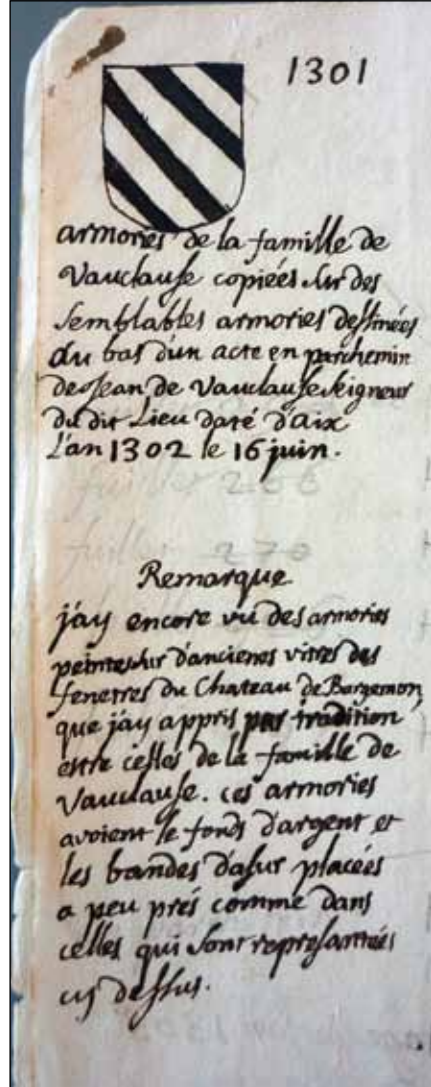 1301
armories de la famille de
Vauclause copiées sur des
semblables armories dessinées
au bas d'un acte en parchemin
de Jean de Vauclause seigneur
du dit Lieu daté d'aix
L'an 1302 le 16 juin.
fuillet 266
fuillet 270
Remarque
j'ay encore vu des armories
peintes sur d'ancienes vitres des
fenetres du Chateau de Bargemon,
que j'ay appris par tradition
estre celles de la famille de
Vauclause. ces armories
avoient le fonds d'argent et
les bandes d'asur placées
a peu prés comme dans
celles qui sont represantées
cy dessus.